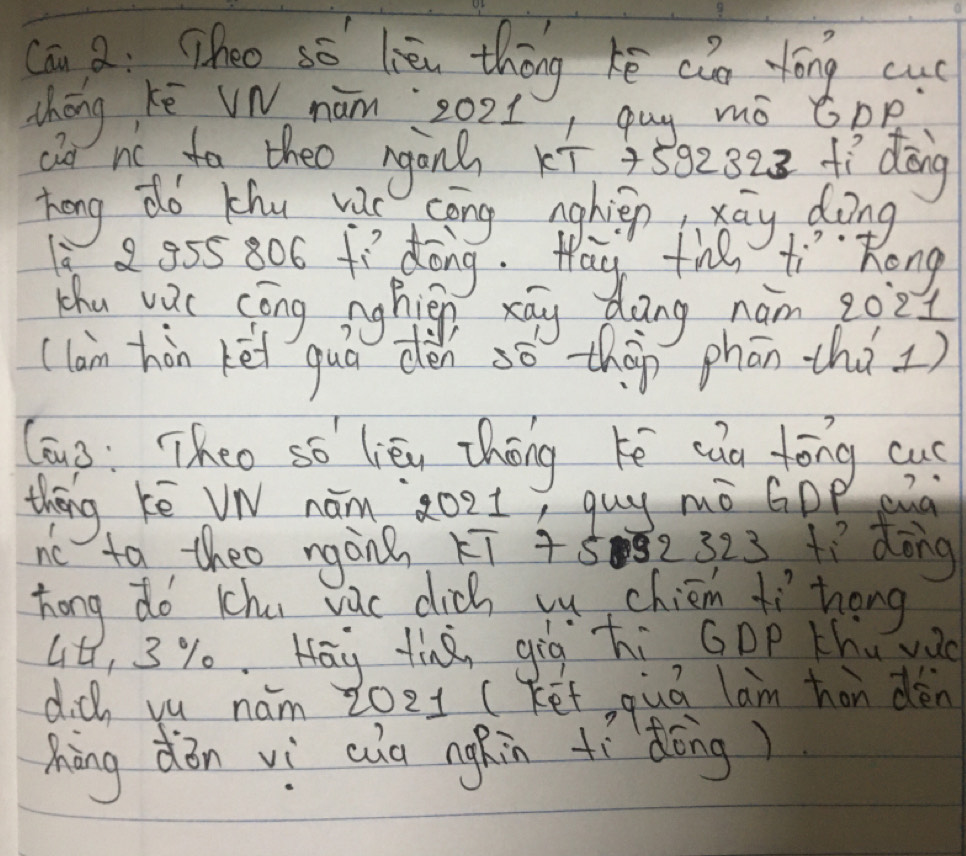 Câu 2: Theo số liệu thống kê của tổng cục
thống kê VN năm 2021, quy mô GDP
của nc ta theo ngành KT 7592323 tỉ đồng
trong đó khu vực công nghiệp, xây dựng
là 2 955 806 tỉ đồng. Hãy tính tỉ trọng
khu vực công nghiệp xây dựng năm 2021
(làm tròn kết quả đến số thập phân thứ 1)
Câu 3: Theo số liệu thống kê của tổng cục
thống kê VN năm 2021, quy mô GDP của
nc ta theo ngành KT 7592 323 tỉ đồng
trong đó khu vực dịch vụ chiếm tỉ trọng
, 3%. Hãy tính giá trị GDP khu vực
dịch vụ năm 2021 (kết quả làm tròn đến
hàng đơn vị của nghìn tỉ đồng).